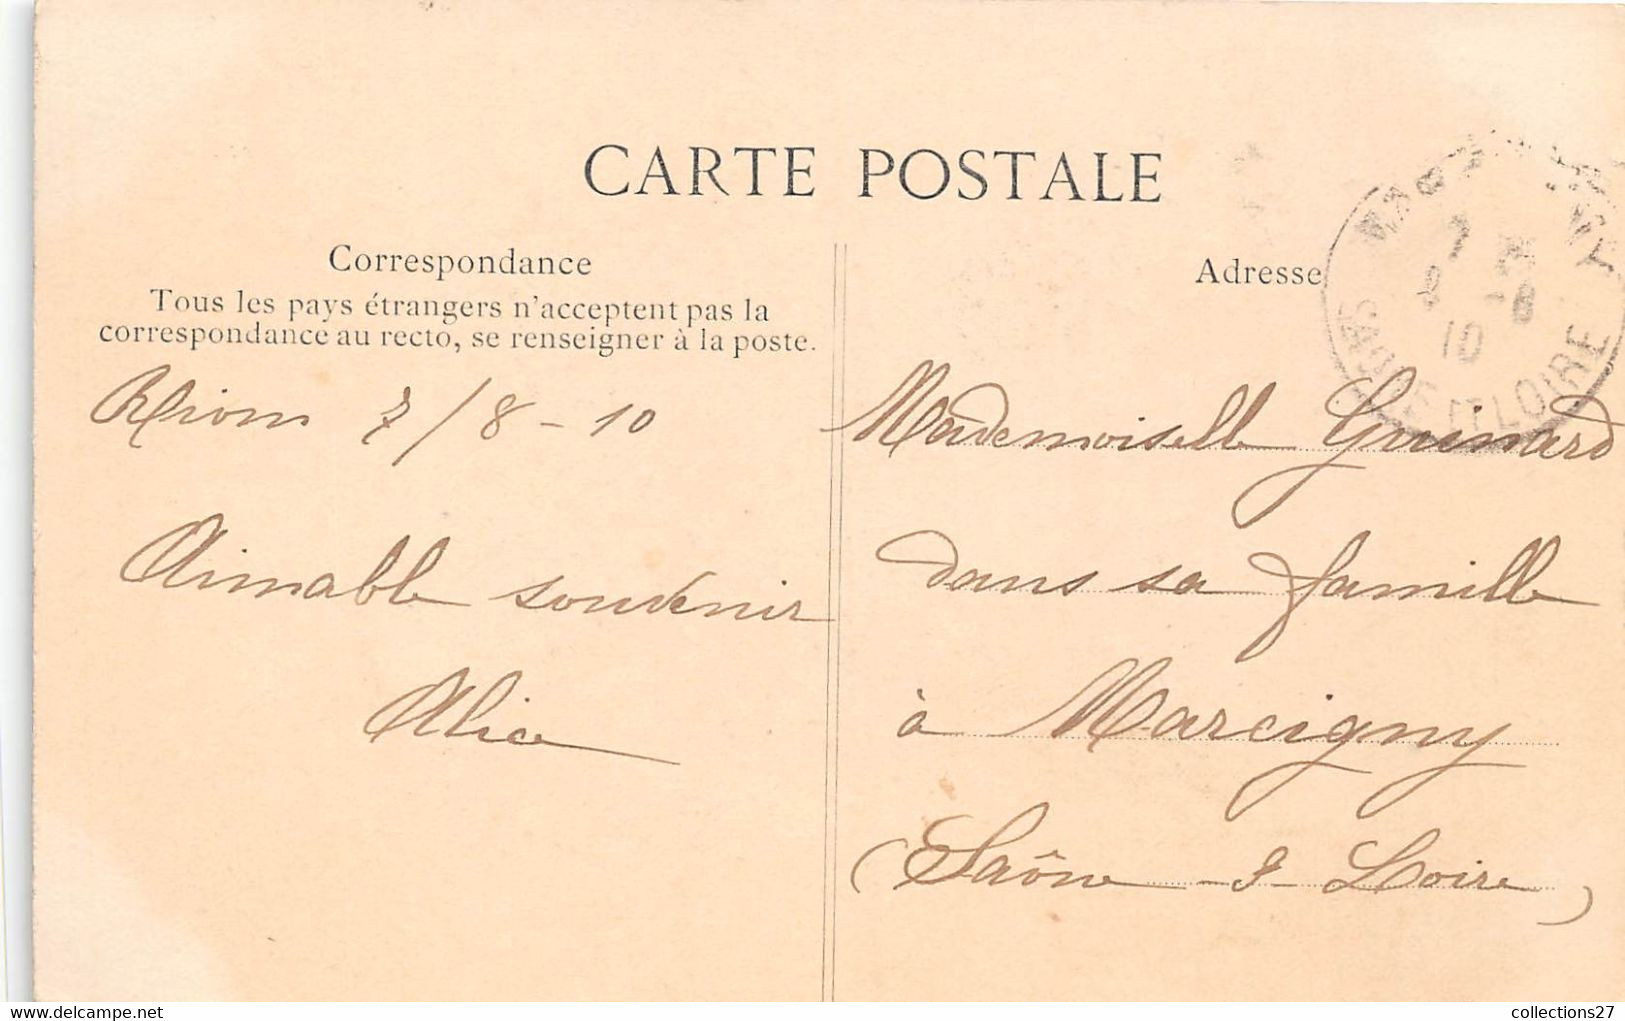 CARTE POSTALE
Correspondance
Tous les pays étrangers n'acceptent pas la
correspondance au recto, se renseigner à la poste.
Riom 7/8-10
Aimable souvenir
Alice
Adresse
7
8 -8
10
SAONE ET LOIRE
Mademoiselle Guimard
dans sa famille
à Marcigny
(Saône-&-Loire)
delcampe.net
collections27